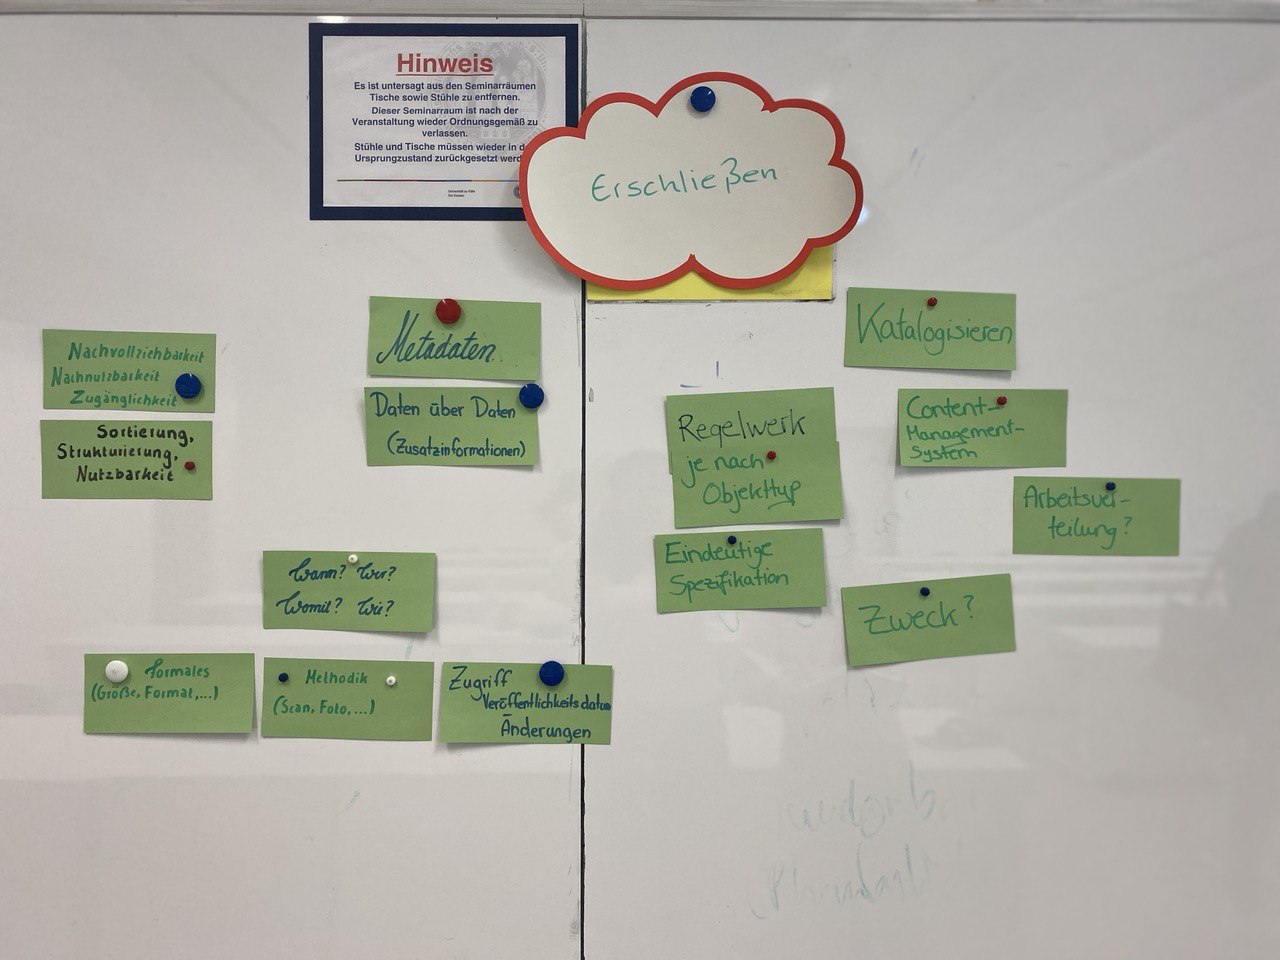 Hinweis
Es ist untersagt aus den Seminarräumen
Tische sowie Stühle zu entfernen.
Dieser Seminarraum ist nach der
Veranstaltung wieder Ordnungsgemäß zu
verlassen.
Stühle und Tische müssen wieder in
Ursprungzustand zurückgesetzt
Erschließen
Nachvollziehbarkeit
Nachnutzbarkeit
Zugänglichkeit
Sortierung,
Strukturierung,
Nutzbarkeit
Metadaten
Daten über Daten
(Zusatzinformationen)
Wann? Wer?
Womit? Wie?
Formales
(Größe, Format,...)
Methodik
(Scan, Foto,...)
Zugriff
Veröffentlichkeitsdatum
Änderungen
Regelwerk
je nach
Objekttyp
Eindeutige
Spezifikation
Katalogisieren
Content-
Management-
System
Arbeitsver-
teilung?
Zweck?